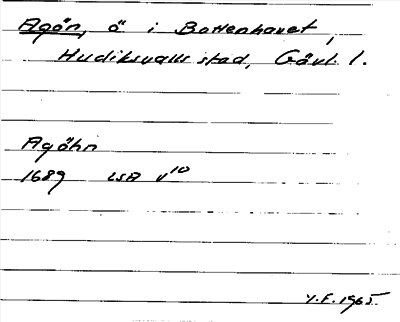 Agön, ö i Bottenhavet,
Hudiksvalls stad, Gävl. l.
Agöhn
1689 LSA v10
Y.F. 1965.